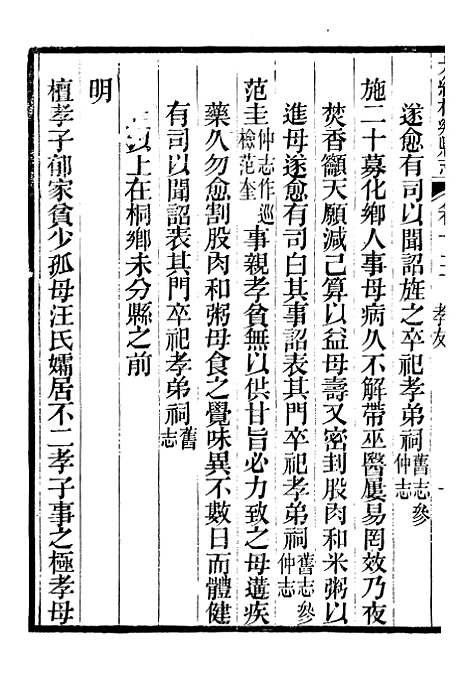 遂愈有司以聞詔旌之卒祀孝弟祠舊志參仲志
施二十募化鄉人事母病久不解帶巫醫屢易罔效乃夜
焚香籲天願減己算以益母壽又密刲股肉和米粥以
進母遂愈有司白其事詔表其門卒祀孝弟祠舊志參仲志
范圭仲志作巡檢范奎事親孝貧無以供甘旨必力致之母遘疾
藥久勿愈割股肉和粥母食之覺味異不數日而體健
有司以聞詔表其門卒祀孝弟祠舊志
以上在桐鄉未分縣之前
明
檀孝子郁家貧少孤母汪氏孀居不二孝子事之極孝母